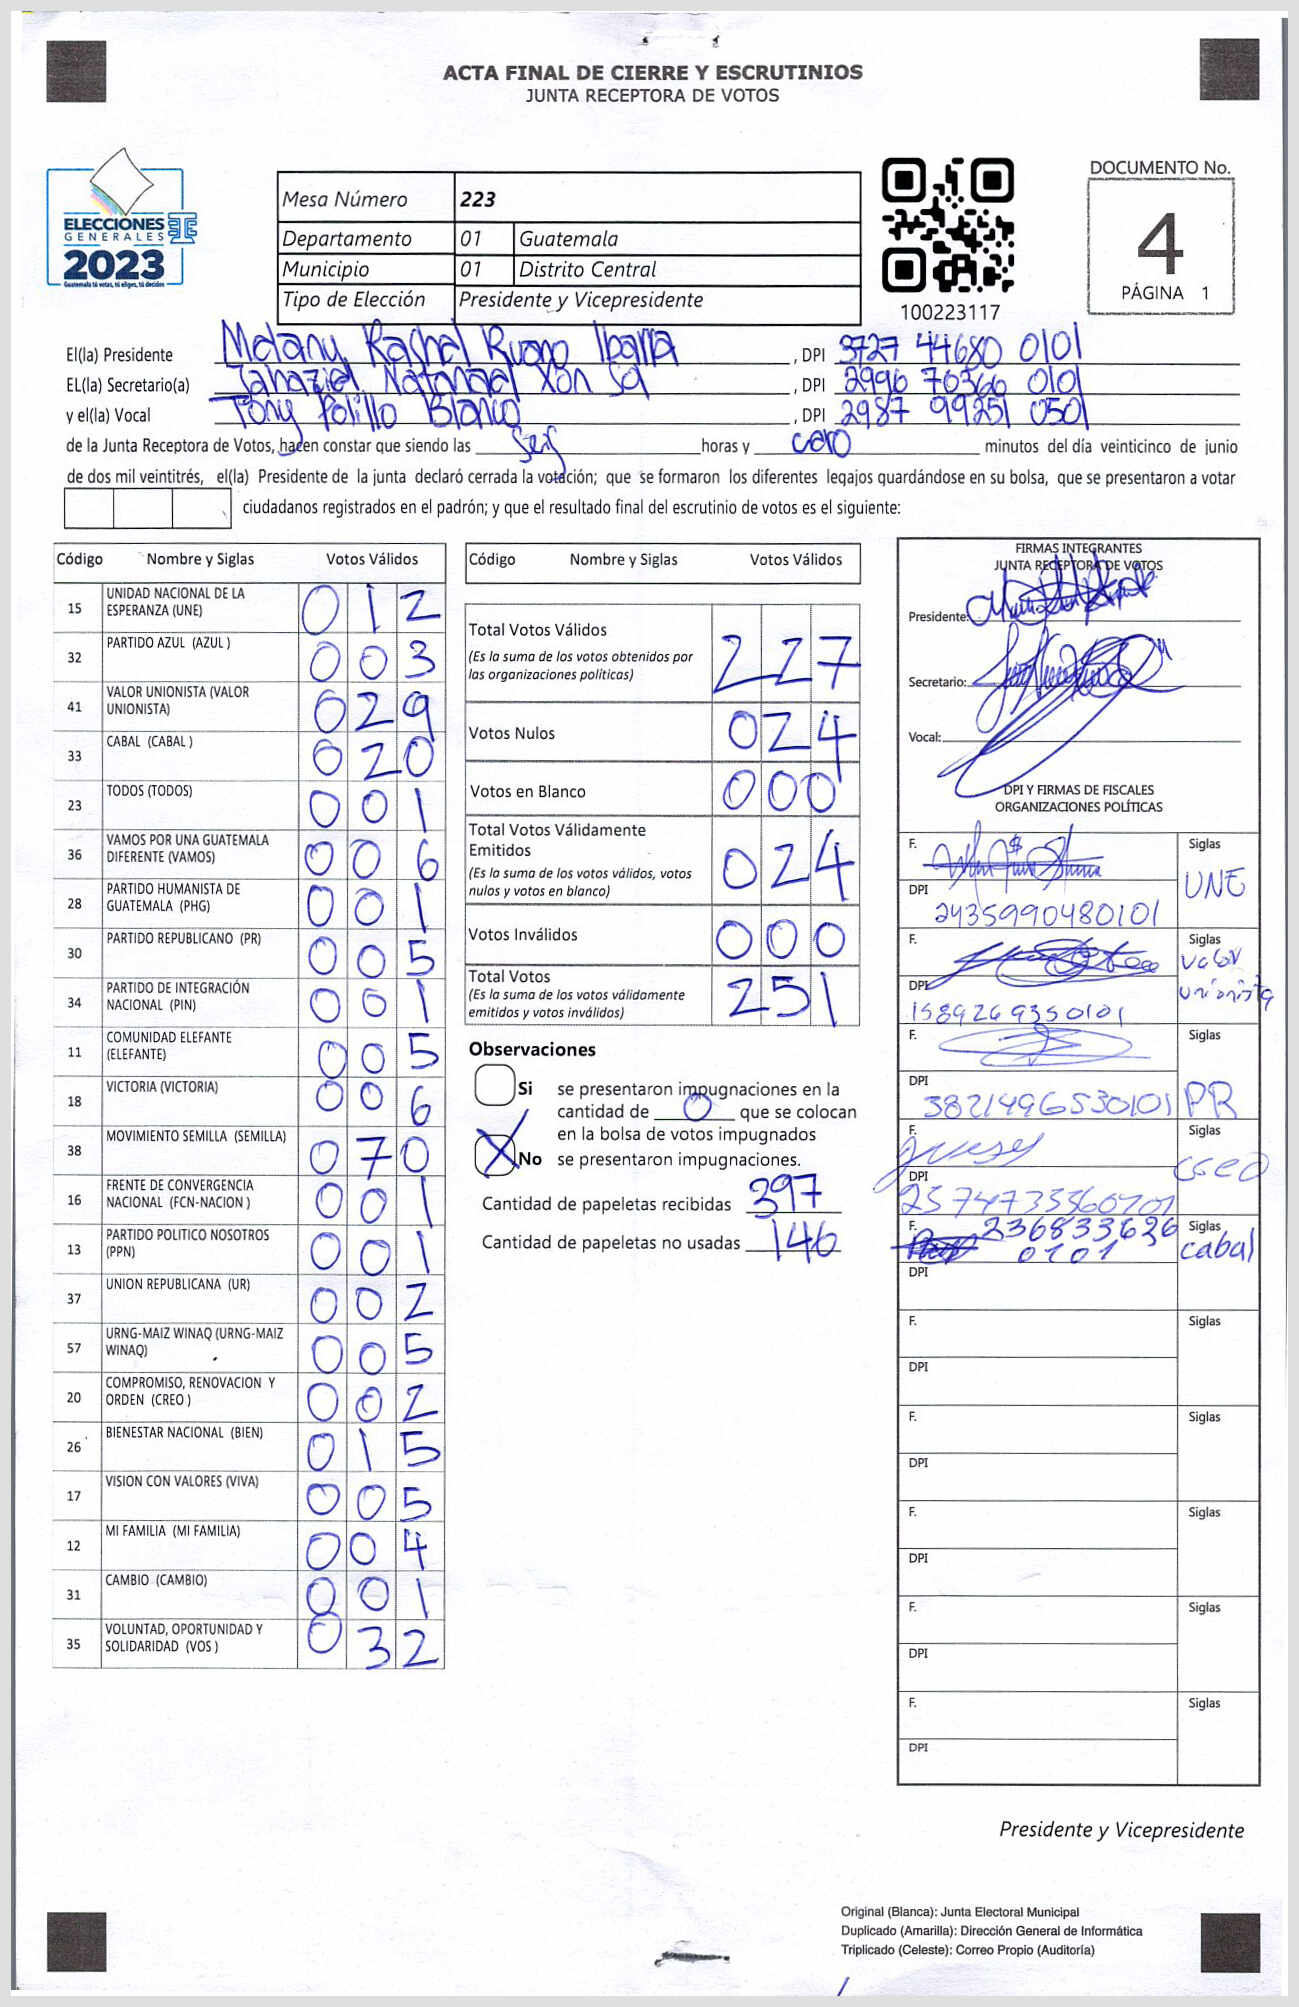 ACTA FINAL DE CIERRE Y ESCRUTINIOS
JUNTA RECEPTORA DE VOTOS
ELECCIONES
GENERALES
2023
Guatemala tú votas, tú eliges, tú decides
Mesa Número 223
Departamento 01 Guatemala
Municipio 01 Distrito Central
Tipo de Elección Presidente y Vicepresidente
100223117
DOCUMENTO No.
4
PÁGINA 1
El(la) Presidente Melany Rashel Ruano Ibarra , DPI 3727 44680 0101
EL(la) Secretario(a) Jahaziel Natanael Xon Sol , DPI 2996 70366 0101
y el(la) Vocal Tony Polillo Blanco , DPI 2987 99251 0501
de la Junta Receptora de Votos, hacen constar que siendo las seis horas y cero minutos del día veinticinco de junio
de dos mil veintitrés, el(la) Presidente de la junta declaró cerrada la votación; que se formaron los diferentes legajos guardándose en su bolsa, que se presentaron a votar
ciudadanos registrados en el padrón; y que el resultado final del escrutinio de votos es el siguiente:
Código Nombre y Siglas Votos Válidos
15 UNIDAD NACIONAL DE LA ESPERANZA (UNE) 012
32 PARTIDO AZUL (AZUL ) 003
41 VALOR UNIONISTA (VALOR UNIONISTA) 029
33 CABAL (CABAL ) 020
23 TODOS (TODOS) 001
36 VAMOS POR UNA GUATEMALA DIFERENTE (VAMOS) 006
28 PARTIDO HUMANISTA DE GUATEMALA (PHG) 001
30 PARTIDO REPUBLICANO (PR) 005
34 PARTIDO DE INTEGRACIÓN NACIONAL (PIN) 001
11 COMUNIDAD ELEFANTE (ELEFANTE) 005
18 VICTORIA (VICTORIA) 006
38 MOVIMIENTO SEMILLA (SEMILLA) 070
16 FRENTE DE CONVERGENCIA NACIONAL (FCN-NACION ) 001
13 PARTIDO POLITICO NOSOTROS (PPN) 001
37 UNION REPUBLICANA (UR) 002
57 URNG-MAIZ WINAQ (URNG-MAIZ WINAQ) 005
20 COMPROMISO, RENOVACION Y ORDEN (CREO ) 002
26 BIENESTAR NACIONAL (BIEN) 015
17 VISION CON VALORES (VIVA) 005
12 MI FAMILIA (MI FAMILIA) 004
31 CAMBIO (CAMBIO) 001
35 VOLUNTAD, OPORTUNIDAD Y SOLIDARIDAD (VOS ) 032
Código Nombre y Siglas Votos Válidos
Total Votos Válidos 227
(Es la suma de los votos obtenidos por
las organizaciones políticas)
Votos Nulos 024
Votos en Blanco 000
Total Votos Válidamente
Emitidos 024
(Es la suma de los votos válidos, votos
nulos y votos en blanco)
Votos Inválidos 000
Total Votos 251
(Es la suma de los votos válidamente
emitidos y votos inválidos)
Observaciones
Si se presentaron impugnaciones en la
cantidad de 0 que se colocan
en la bolsa de votos impugnados
X No se presentaron impugnaciones.
Cantidad de papeletas recibidas 397
Cantidad de papeletas no usadas 146
FIRMAS INTEGRANTES
JUNTA RECEPTORA DE VOTOS
Presidente:
Secretario:
Vocal:
DPI Y FIRMAS DE FISCALES
ORGANIZACIONES POLÍTICAS
F. Siglas UNE
DPI 2435990480101
F. Siglas Valor Unionista
DPI 1589269350101
F. Siglas PR
DPI 3821496530101
F. Siglas creo
DPI 2574733560101
F. 236833626 0101 Siglas cabal
DPI
F. Siglas
DPI
F. Siglas
DPI
F. Siglas
DPI
F. Siglas
DPI
F. Siglas
DPI
Presidente y Vicepresidente
Original (Blanca): Junta Electoral Municipal
Duplicado (Amarilla): Dirección General de Informática
Triplicado (Celeste): Correo Propio (Auditoría)